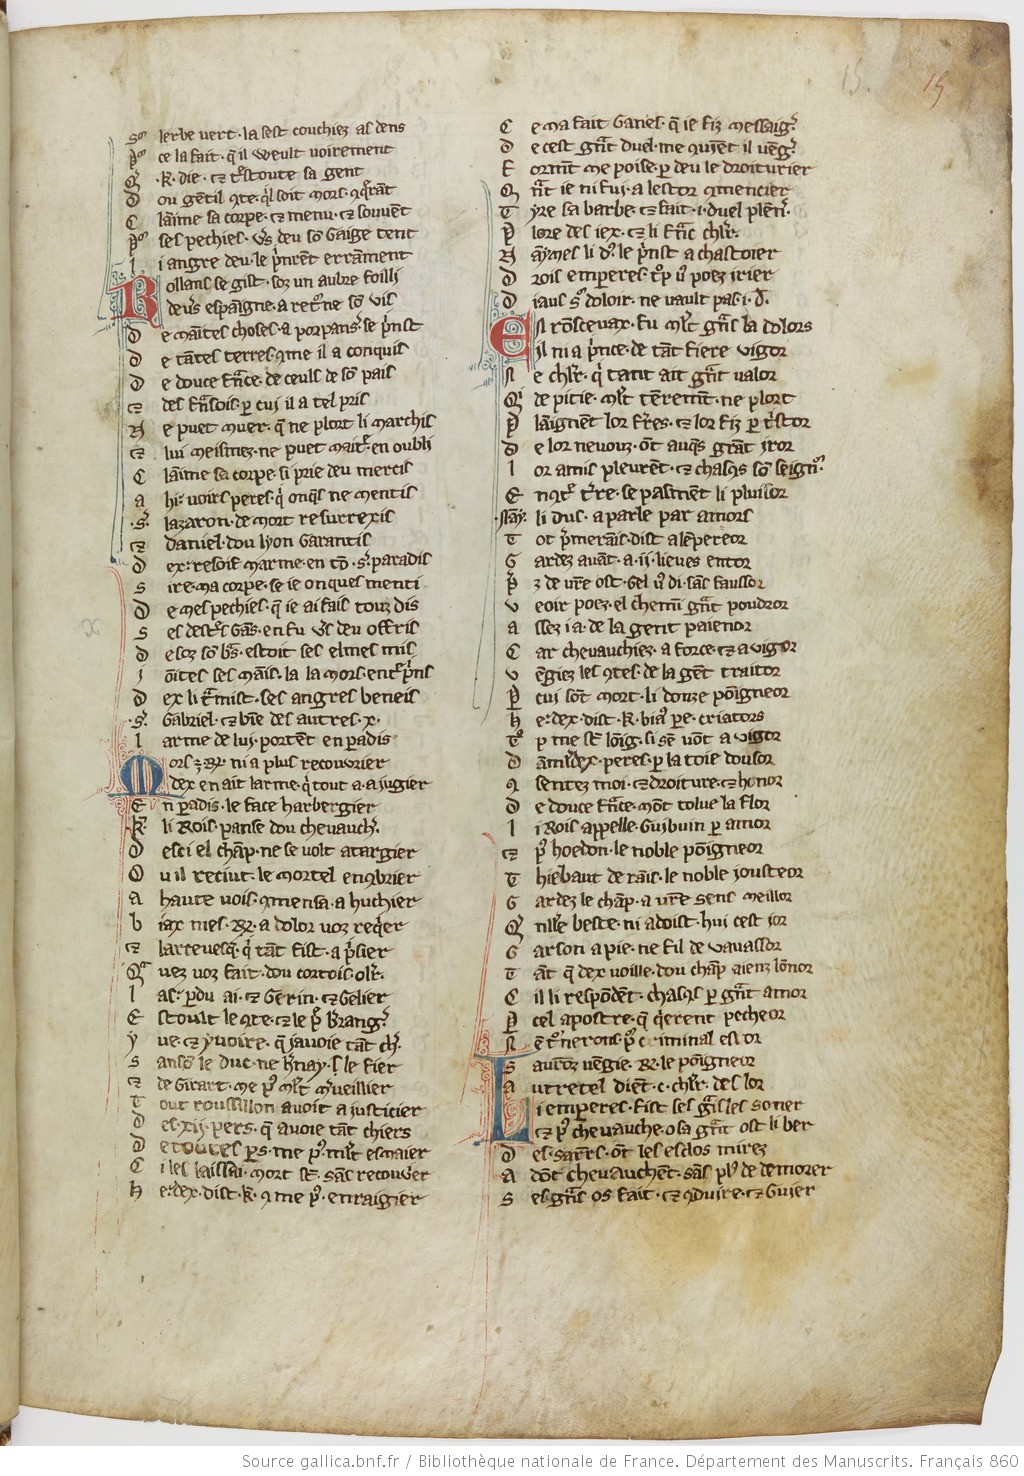 15. 15
Sor lerbe vert · la sest couchiez as dens
Por ce la fait · q̃ il weult voirement
Q̃ · k · die · ⁊ trestoute sa gent
Dou gẽtil ꝯte · q̃l soit mors ꝯq̃rãt
Claime sa corpe · ⁊ menu ⁊ souvẽt
Por ses pechies · v̾s deu sõ gaige tent
Li angre deu · le p̃nrẽt errãment
Rollans se gist · soz un aubre foilli
Deuers espaigne · a ret̾ne sõ vis
De mãites choses · a porpans̾ se p̃nst
De tãtes terres ꝯme il a conquis
De douce frãce · de ceuls de sõ pais
⁊ des frãsois · ꝑ cui il a tel pris
Ne puet muer · q̃ ne plort li marchis
⁊ lui meismez · ne puet mait̾e en oubli
Claime sa corpe · si prie deu mercis
Ahi · voirs peres · q̃ onq̾s ne mentis
· S̾ · lazaron · de mort resurrexis
⁊ daniel · dou lyon garantis
Dex · resoif marme · en tõ · s̾ · paradis
Sire · ma corpe · se ie onques menti
De mes pechies · q̃ ie ai fais touz dis
Ses destr̃s gãs · en fu v̾s deu offris
Desoz sõ br̃s · estoit ses elmes mis
Ioĩtes ses mãis · la la mors entrẽp̃ns
Dex li trãmist · ses angres beneis
· S̾ · Gabriel · ⁊ bĩe des autres · x ·
Larme de lui · portent en paradis
Mors ⁊ R̾ · ni a plus recouvrier
Dex en ait larme · q̃ tout a · a jugier
En ꝑadis · le face harbergier
K̾ · li Rois · panse dou chevauch̾
Desci el chãp · ne se volt atargier
Ou il reciut · le mortel enꝯbrier
A haute vois · ꝯmensa · a huchier
Biax nies · R̾ · a dolor voz req̾er
⁊ larcevesq̾ · q̃ tãt fist · a p̃sier
Q̃ avez voz fait · dou cortois · ol̾r ·
Las · ꝑdu ai · ⁊ Gerin · ⁊ Gelier
Estoult le ꝯte · ⁊ le p̃ berangr̾
Yve · ⁊ yvoire · q̃ javoie tãt ch̾
Ansõ le duc · ne h̾nays le fier
⁊ de Girart · me p̾ ml̾t m̾veillier
Tout roussillon avoit a justicier
Des · xij · pers · q̃ avoie tãt chiers
De toutes ꝑs · me p̾ · ml̾t esmaier
Ci les laissai · mort st̾ · sãs recoṽer
He · dex · dist · k · ꝯ me p̾ · enraigier
Ce ma fait Ganes · q̃ ie fiz messaigr̾
De cest grãt duel · me quiẽt il vẽgr̾
Formt̃ me poise · ꝑ deu le droiturier
Q̃nt ie ni fui · a lestor ꝯmencier
Tyre sa barbe · ⁊ fait · i · duel plen̾
Plore des iex · ⁊ li frãc ch̾lr̾
Naymes li d̾ · le p̃nst a chastoier
Drois emperes · trop v̾ poez irier
Diaus sor doloir · ne vault pas · i · d̾ ·
En rõscevax · fu ml̾t grãs la dolors
Il ni a p̃nce · de tãt fiere vigor
Ne ch̾lr · q̃ tant ait grãt valor
Qui de pitie · ml̾t tẽremt̃ · ne plort
Plaingnent lor fr̃es · ⁊ lor fiz ꝑ tristor
De lor nevouz · õt auq̾s grãt iror
Lor amis pleurẽt · ⁊ chasq̾s sõ seignor
Enꝯt̾e t̾re · se pasment li plusor
· Naym̾ · li dus · a parle par amors
Tot p̃merãis · dist a lẽpereor
Gardez avãt · a · ii · lieues entor
Prez de vr̃e ost · gel v̾ di sãs faussor
Veoir poez · el chemĩ grãt poudror
Assez i a · de la gent paienor
Car chevauchiez · a force · ⁊ a vigor
Vẽgiez les ꝯtes · de la gẽt traitor
Par cui sõt mort · li douze põigneor
He · dex · dist · k̾ · biax pe · criators
Trop me st̾ lõig · si sẽ võt a vigor
Dãmldex · peres · ꝑ la toie dousor
ꝯsentez moi · ⁊ droiture · ⁊ honor
De douce frãce · mõt tolue la flor
Li Rois appelle · Guibuin ꝑ amor
⁊ p̾ hoedon · le noble põigneor
Thiebaut de rãis · le noble jousteor
Gardez le chãp · a vr̃e sens meillor
Q̃ nllẽ beste · ni adoist · hui cest jor
Garson a pie · ne fil de vavassor
Tãt q̃ dex voille · dou chãp aienz lõnor
Cil li respõdẽt · chasq̾s ꝑ grãt amor
Par cel apostre · q̃ q̃erent pecheor
Nẽ t̾nerons · p̾ criminal estor
Savrõz vẽgie · R̾ · le põigneor
Autretel diẽt · c · ch̾lr · des lor
Li emperes · fist ses grãisles soner
⁊ p̾ chevauche · o sa grãt ost li ber
Des · sarr̃s · õt les esclos mirez
Adõt chevauchẽt · sãs pl̾ de demorer
Ses · grãs os fait · ⁊ ꝯduire · ⁊ Guier
Source gallica.bnf.fr / Bibliothèque nationale de France. Département des Manuscrits. Français 860